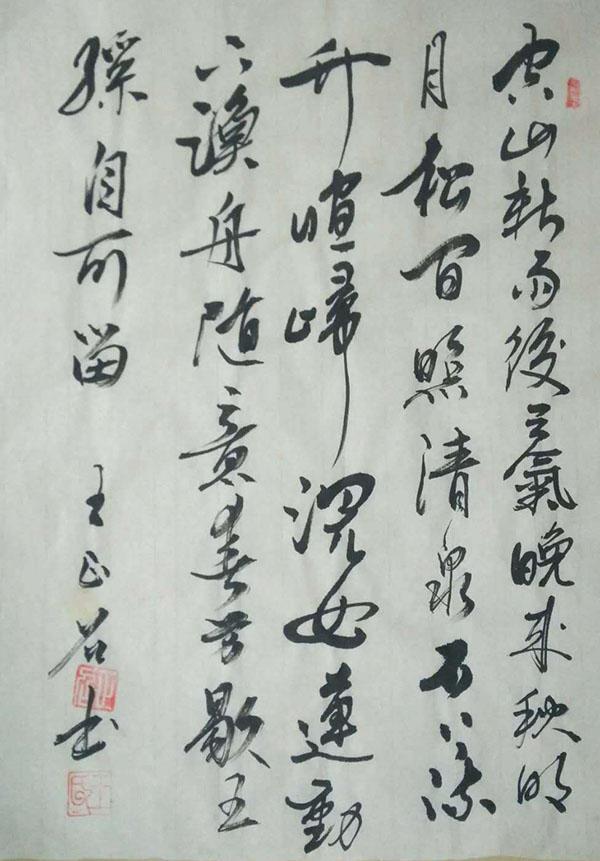 空山新雨後天氣晚來秋明
月松间照清泉石上流
竹喧歸浣女蓮動
下漁舟隨意春芳歇王
孫自可留 王正谷书